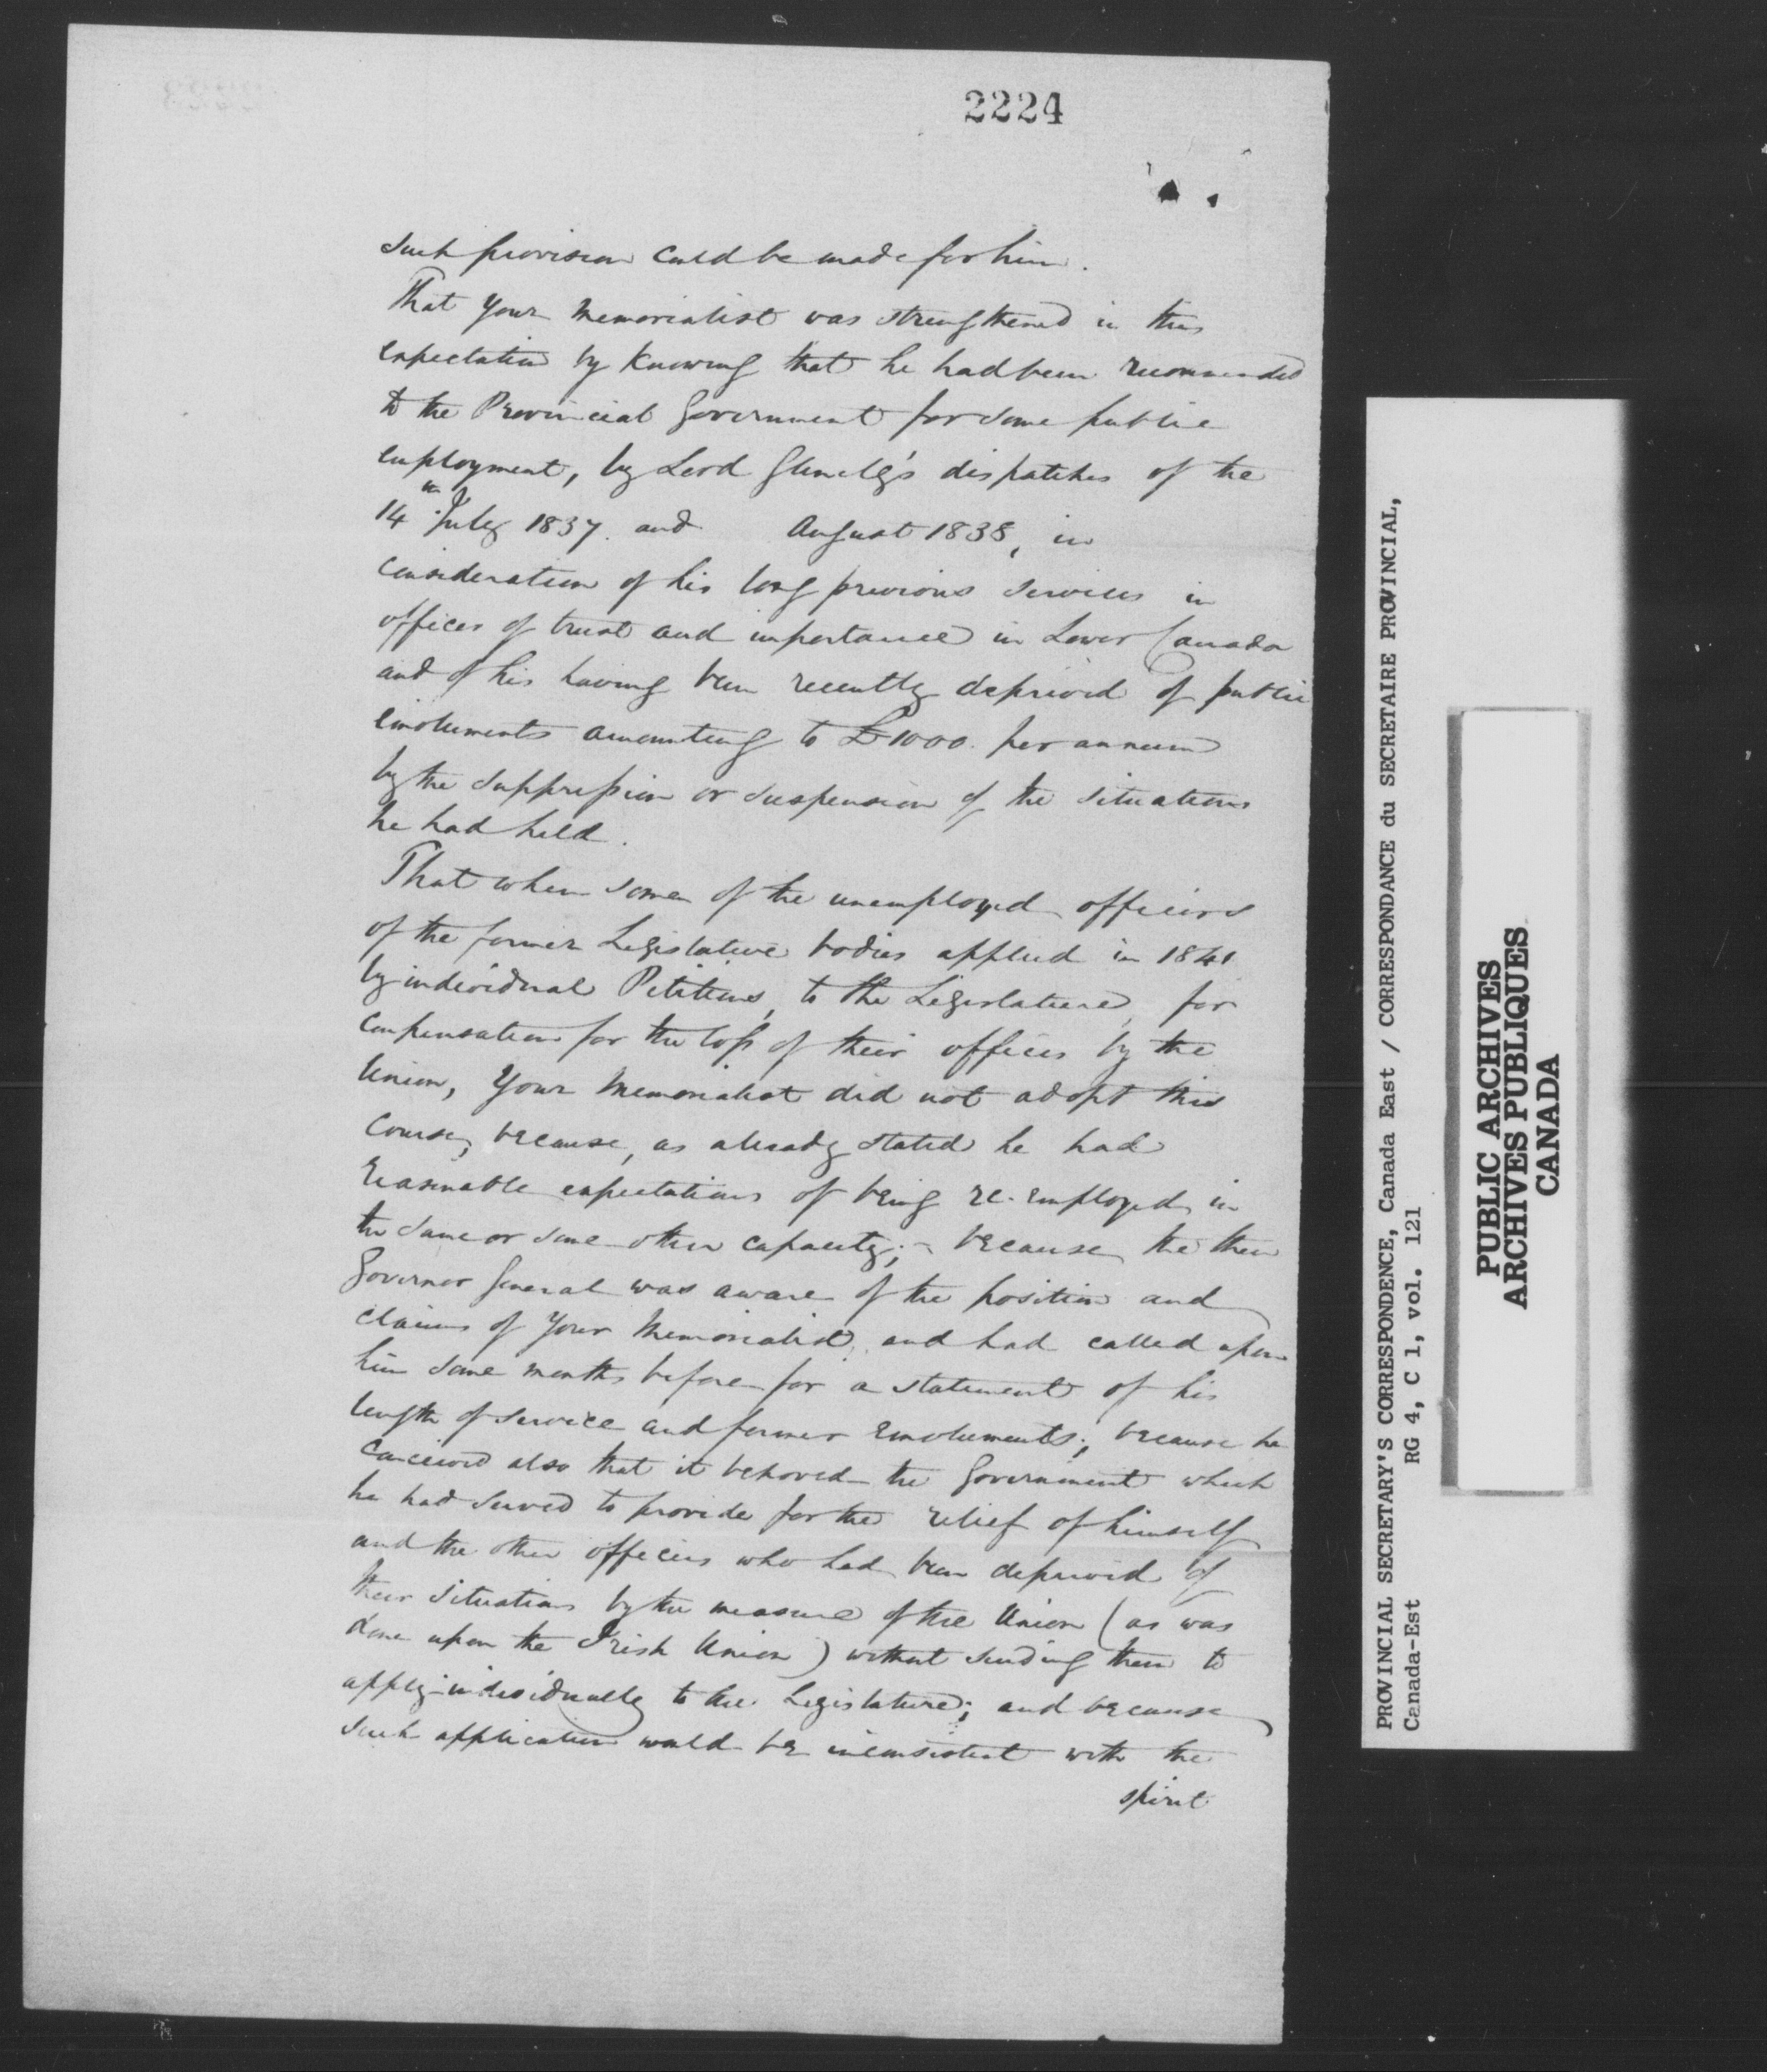 2224
such provision could be made for him.
That Your Memorialist was strengthened in this
expectation by knowing that he had been recommended
to the Provincial Government for some public
employment, by Lord Glenelg's dispatches of the
14th July 1837. and August 1838, in
consideration of his long previous services in
offices of trust and importance in Lower Canada
and of his having been recently deprived of public
emoluments amounting to £1000. per annum
by the suppression or suspension of the situations
he had held.
That when some of the unemployed officers
of the former Legislative bodies applied in 1841
by individual Petitions, to the Legislature, for
compensation for the loss of their offices by the
Union, Your Memorialist did not adopt this
course, because, as already stated he had
reasonable expectations of being re-employed in
the same or some other capacity; - because the then
Governor General was aware of the position and
claims of Your Memorialist, and had called upon
him some months before for a statement of his
length of service and former emoluments; because he
conceived also that it behoved the Government which
he had served to provide for the relief of himself
and the other officers who had been deprived of
their situations by the measure of the Union (as was
done upon the Irish Union) without sending them to
apply individually to the Legislature; and because
such application would be inconsistent with the
spirit
PROVINCIAL SECRETARY'S CORRESPONDENCE, Canada East / CORRESPONDANCE du SECRETAIRE PROVINCIAL,
Canada-Est RG 4, C 1, vol. 121
PUBLIC ARCHIVES
ARCHIVES PUBLIQUES
CANADA